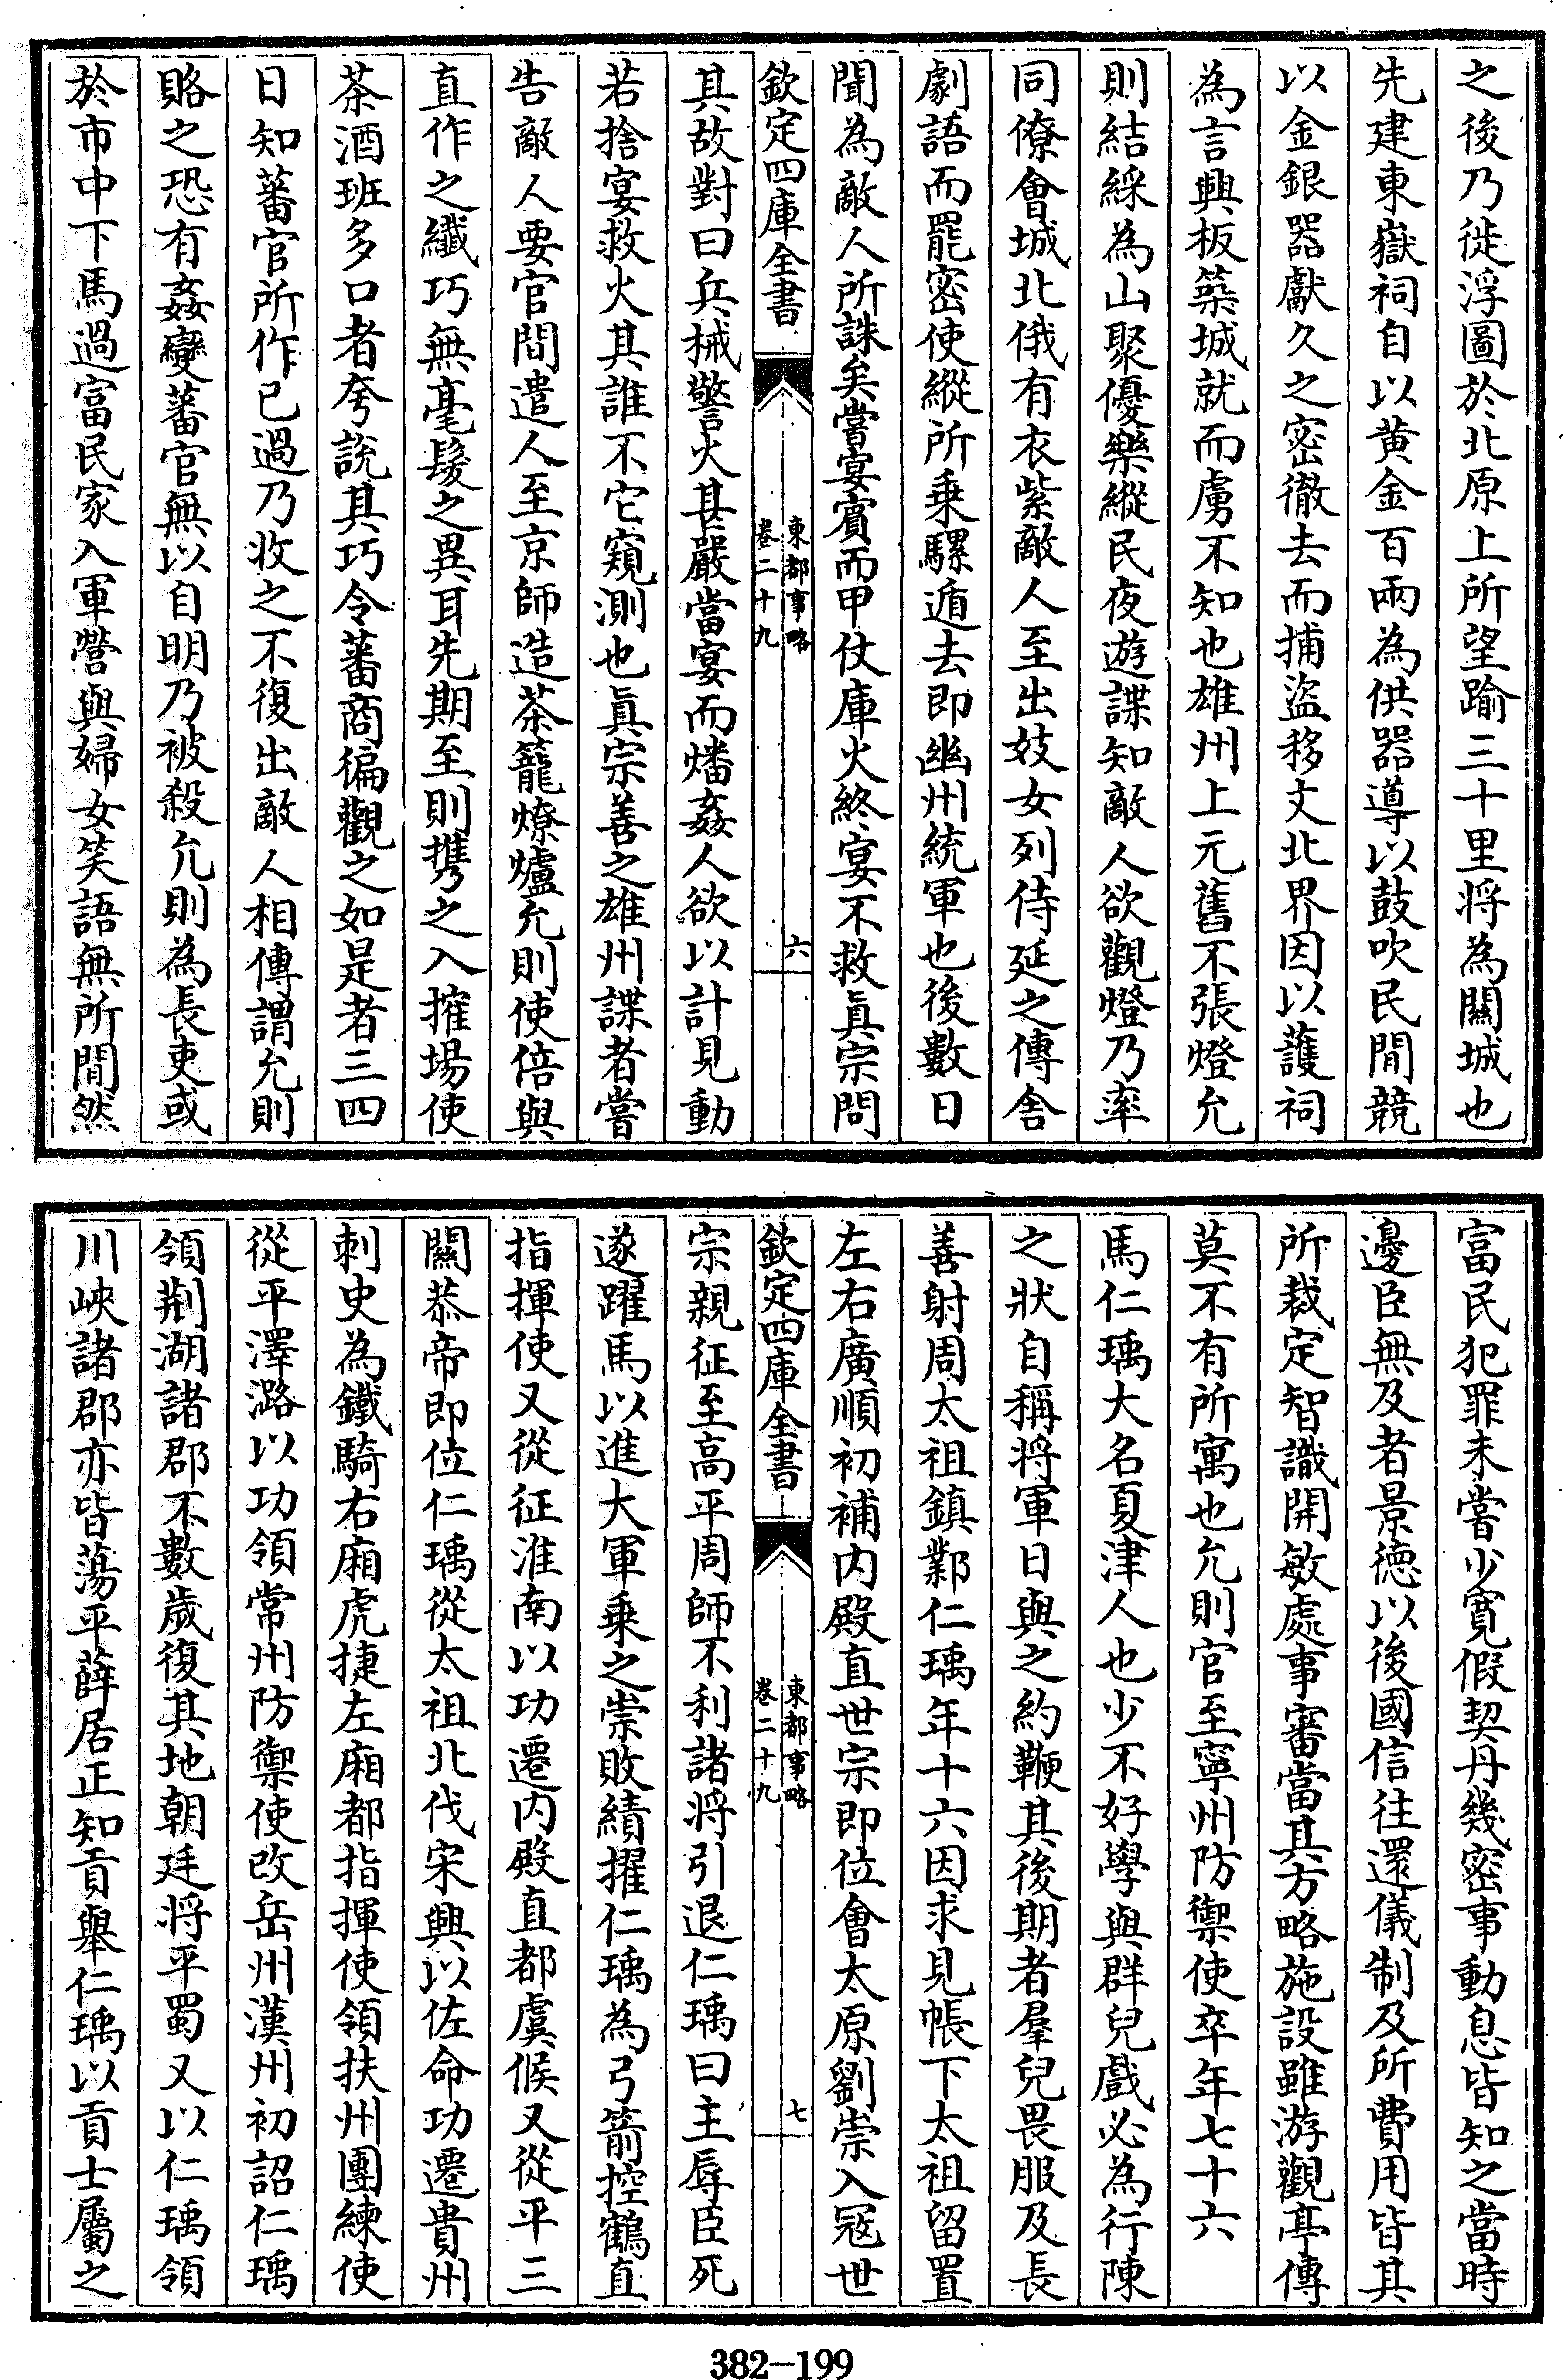 之後乃徙浮圖於北原上所望踰三十里将為關城也
先建東嶽祠自以黄金百兩為供器導以鼓吹民間競
以金銀器獻久之密徹去而捕盗移文北界因以護祠
為言興板築城就而虜不知也雄州上元舊不張燈允
則結綵為山聚優樂縱民夜遊諜知敵人欲觀燈乃率
同僚會城北俄有衣紫敵人至出妓女列侍延之傳舍
劇語而罷密使縱所乗騾遁去即幽州統軍也後數日
聞為敵人所誅矣嘗宴賓而甲仗庫火終宴不救眞宗問
欽定四庫全書
東都事略
卷二十九
六
其故對曰兵械警火甚嚴當宴而燔姦人欲以計見動
若捨宴救火其誰不它窺測也眞宗善之雄州諜者嘗
告敵人要官間遣人至京師造茶籠燎爐允則使倍與
直作之纎巧無毫髮之異耳先期至則携之入搉場使
茶酒班多口者夸說其巧令蕃商徧觀之如是者三四
日知蕃官所作已過乃收之不復出敵人相傳謂允則
賂之恐有姦變蕃官無以自明乃被殺允則為長吏或
於市中下馬過富民家入軍營與婦女笑語無所間然
富民犯罪未嘗少寛假契丹幾密事動息皆知之當時
邊臣無及者景徳以後國信往還儀制及所費用皆其
所裁定智識開敏處事審當其方略施設雖游觀亭傳
莫不有所寓也允則官至寧州防禦使卒年七十六
馬仁瑀大名夏津人也少不好學與群兒戲必為行陳
之狀自稱将軍日與之約鞭其後期者羣兒畏服及長
善射周太祖鎮鄴仁瑀年十六因求見帳下太祖留置
左右廣順初補内殿直世宗即位會太原劉崇入冦世
欽定四庫全書
東都事略
卷二十九
七
宗親征至高平周師不利諸将引退仁瑀曰主辱臣死
遂躍馬以進大軍乗之崇敗績擢仁瑀為弓箭控鶴直
指揮使又從征淮南以功遷内殿直都虞候又從平三
關恭帝即位仁瑀從太祖北伐宋興以佐命功遷貴州
刺史為鐵騎右廂虎捷左廂都指揮使領扶州團練使
從平澤潞以功領常州防禦使改岳州漢州初詔仁瑀
領荆湖諸郡不數歲復其地朝廷将平蜀又以仁瑀領
川峽諸郡亦皆蕩平薛居正知貢舉仁瑀以貢士屬之
382-199